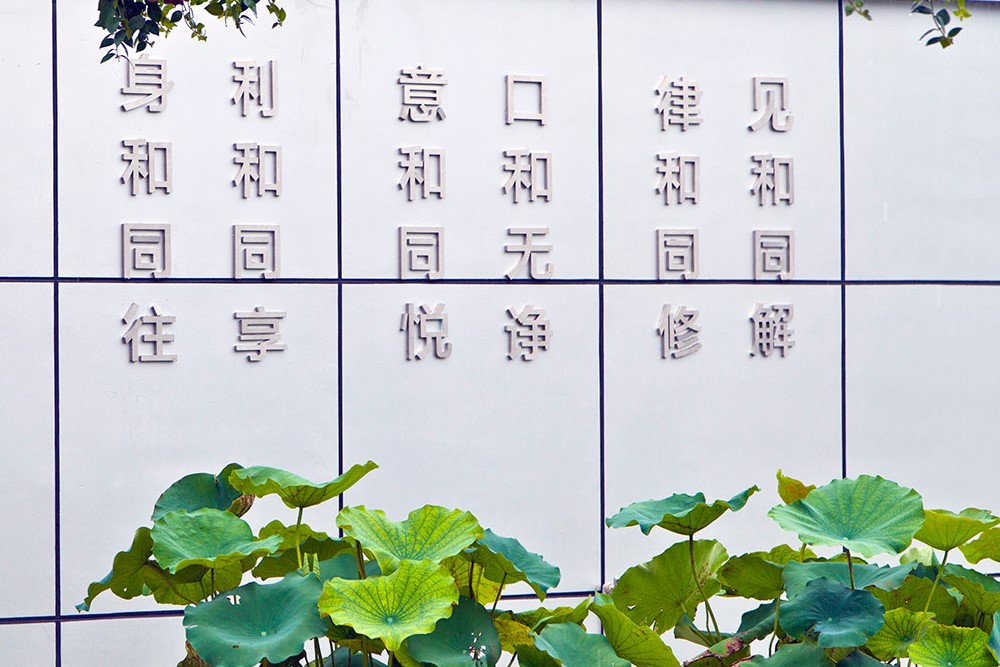 见和同解
律和同修
口和无诤
意和同悦
利和同享
身和同往